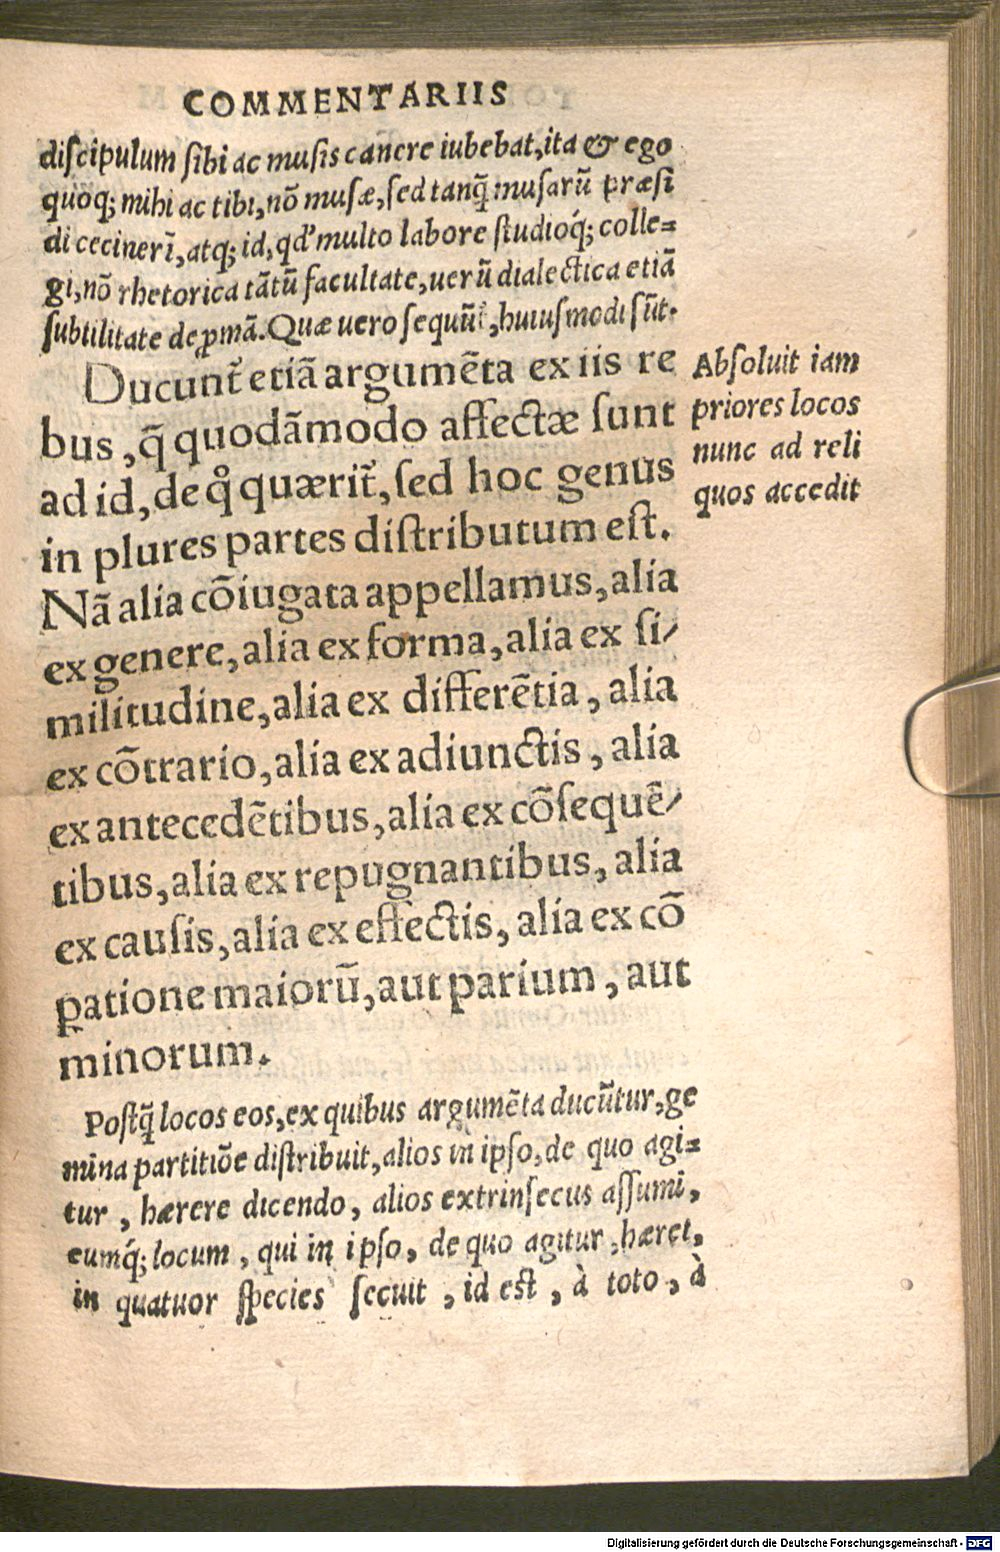 COMMENTARIIS
discipulum sibi ac musis canere iubebat, ita & ego
quoq; mihi ac tibi, nõ musæ, sed tanq̃ musarũ præsi
di cecinerĩ, atq; id, qd' multo labore studioq́; colle=
gi, nõ rhetorica tãtũ facultate, uerũ dialectica etiã
subtilitate deꝓmã. Quæ uero sequũt̃, huiusmodi sũt.
Ducunt̃ etiã argumẽta ex iis re
bus, q̃ quodãmodo affectæ sunt
ad id, de q̊ quærit̃, sed hoc genus
in plures partes distributum est.
Nã alia cõiugata appellamus, alia
ex genere, alia ex forma, alia ex si/
militudine, alia ex differẽtia, alia
ex cõtrario, alia ex adiunctis, alia
ex antecedẽtibus, alia ex cõsequẽ/
tibus, alia ex repugnantibus, alia
ex causis, alia ex effectis, alia ex cõ
ꝑatione maiorũ, aut parium, aut
minorum.
Postq̃ locos eos, ex quibus argumẽta ducũtur, ge
mina partitiõe distribuit, alios in ipso, de quo agi=
tur, hærere dicendo, alios extrinsecus assumi,
eumq́; locum, qui in ipso, de quo agitur, hæret,
in quatuor species secuit, id est, à toto, à
Absoluit iam
priores locos
nunc ad reli
quos accedit
Digitalisierung gefördert durch die Deutsche Forschungsgemeinschaft - DFG